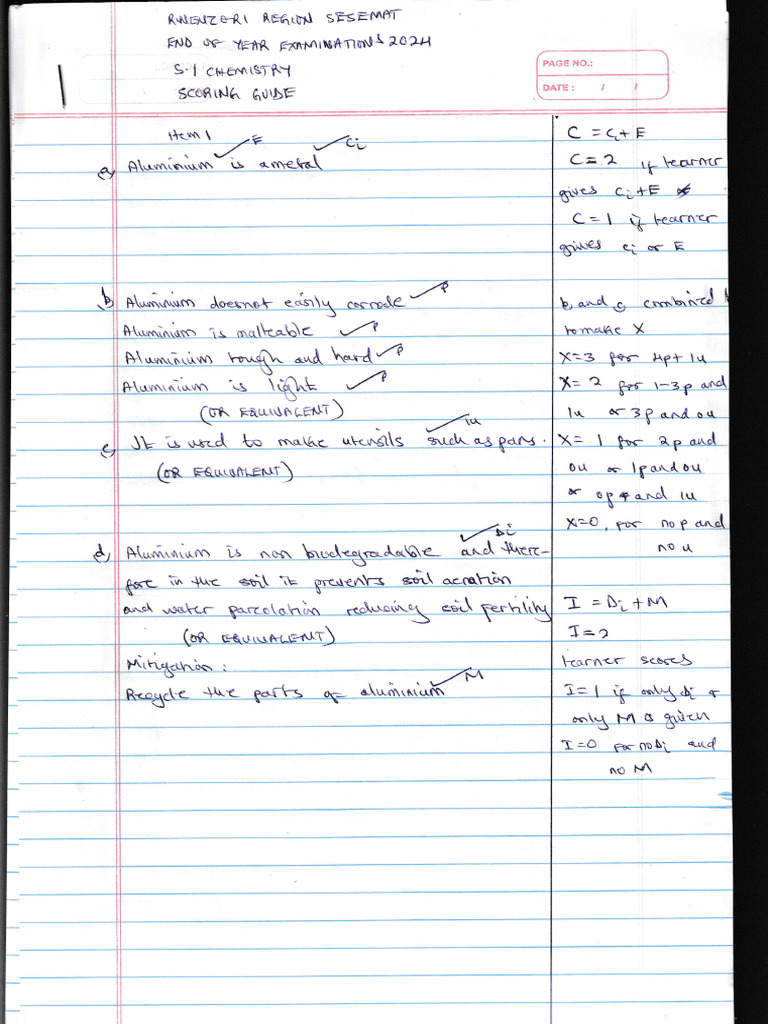 RWENZORI REGION SESEMAT
END OF YEAR EXAMINATIONS 2024
S.1 CHEMISTRY
SCORING GUIDE
PAGE NO.:
DATE : / /
1
Item 1
E
Ci
a) Aluminium is a metal
C = Ci + E
C = 2 if learner
gives Ci + E
C = 1 if learner
gives Ci or E
b) Aluminium doesnot easily corrode P
Aluminium is malleable P
Aluminium tough and hard P
Aluminium is light P
(OR EQUIVALENT)
1u
c) It is used to make utensils such as pans.
(OR EQUIVALENT)
b and c combined
to make X
X=3 for 4p + 1u
X= 2 for 1-3p and
1u or 3p and 0u
X= 1 for 2p and
0u or 1p and 0u
or 0p and 1u
X=0, for no p and
no u
Di
d) Aluminium is non biodegradable and there-
fore in the soil it prevents soil aeration
and water parcolation reducing soil fertility
(OR EQUIVALENT)
Mitigation:
Recycle the parts of aluminium M
I = Di + M
I = 2
learner scores
I=1 if only Di or
only M is given
I=0 for no Di and
no M